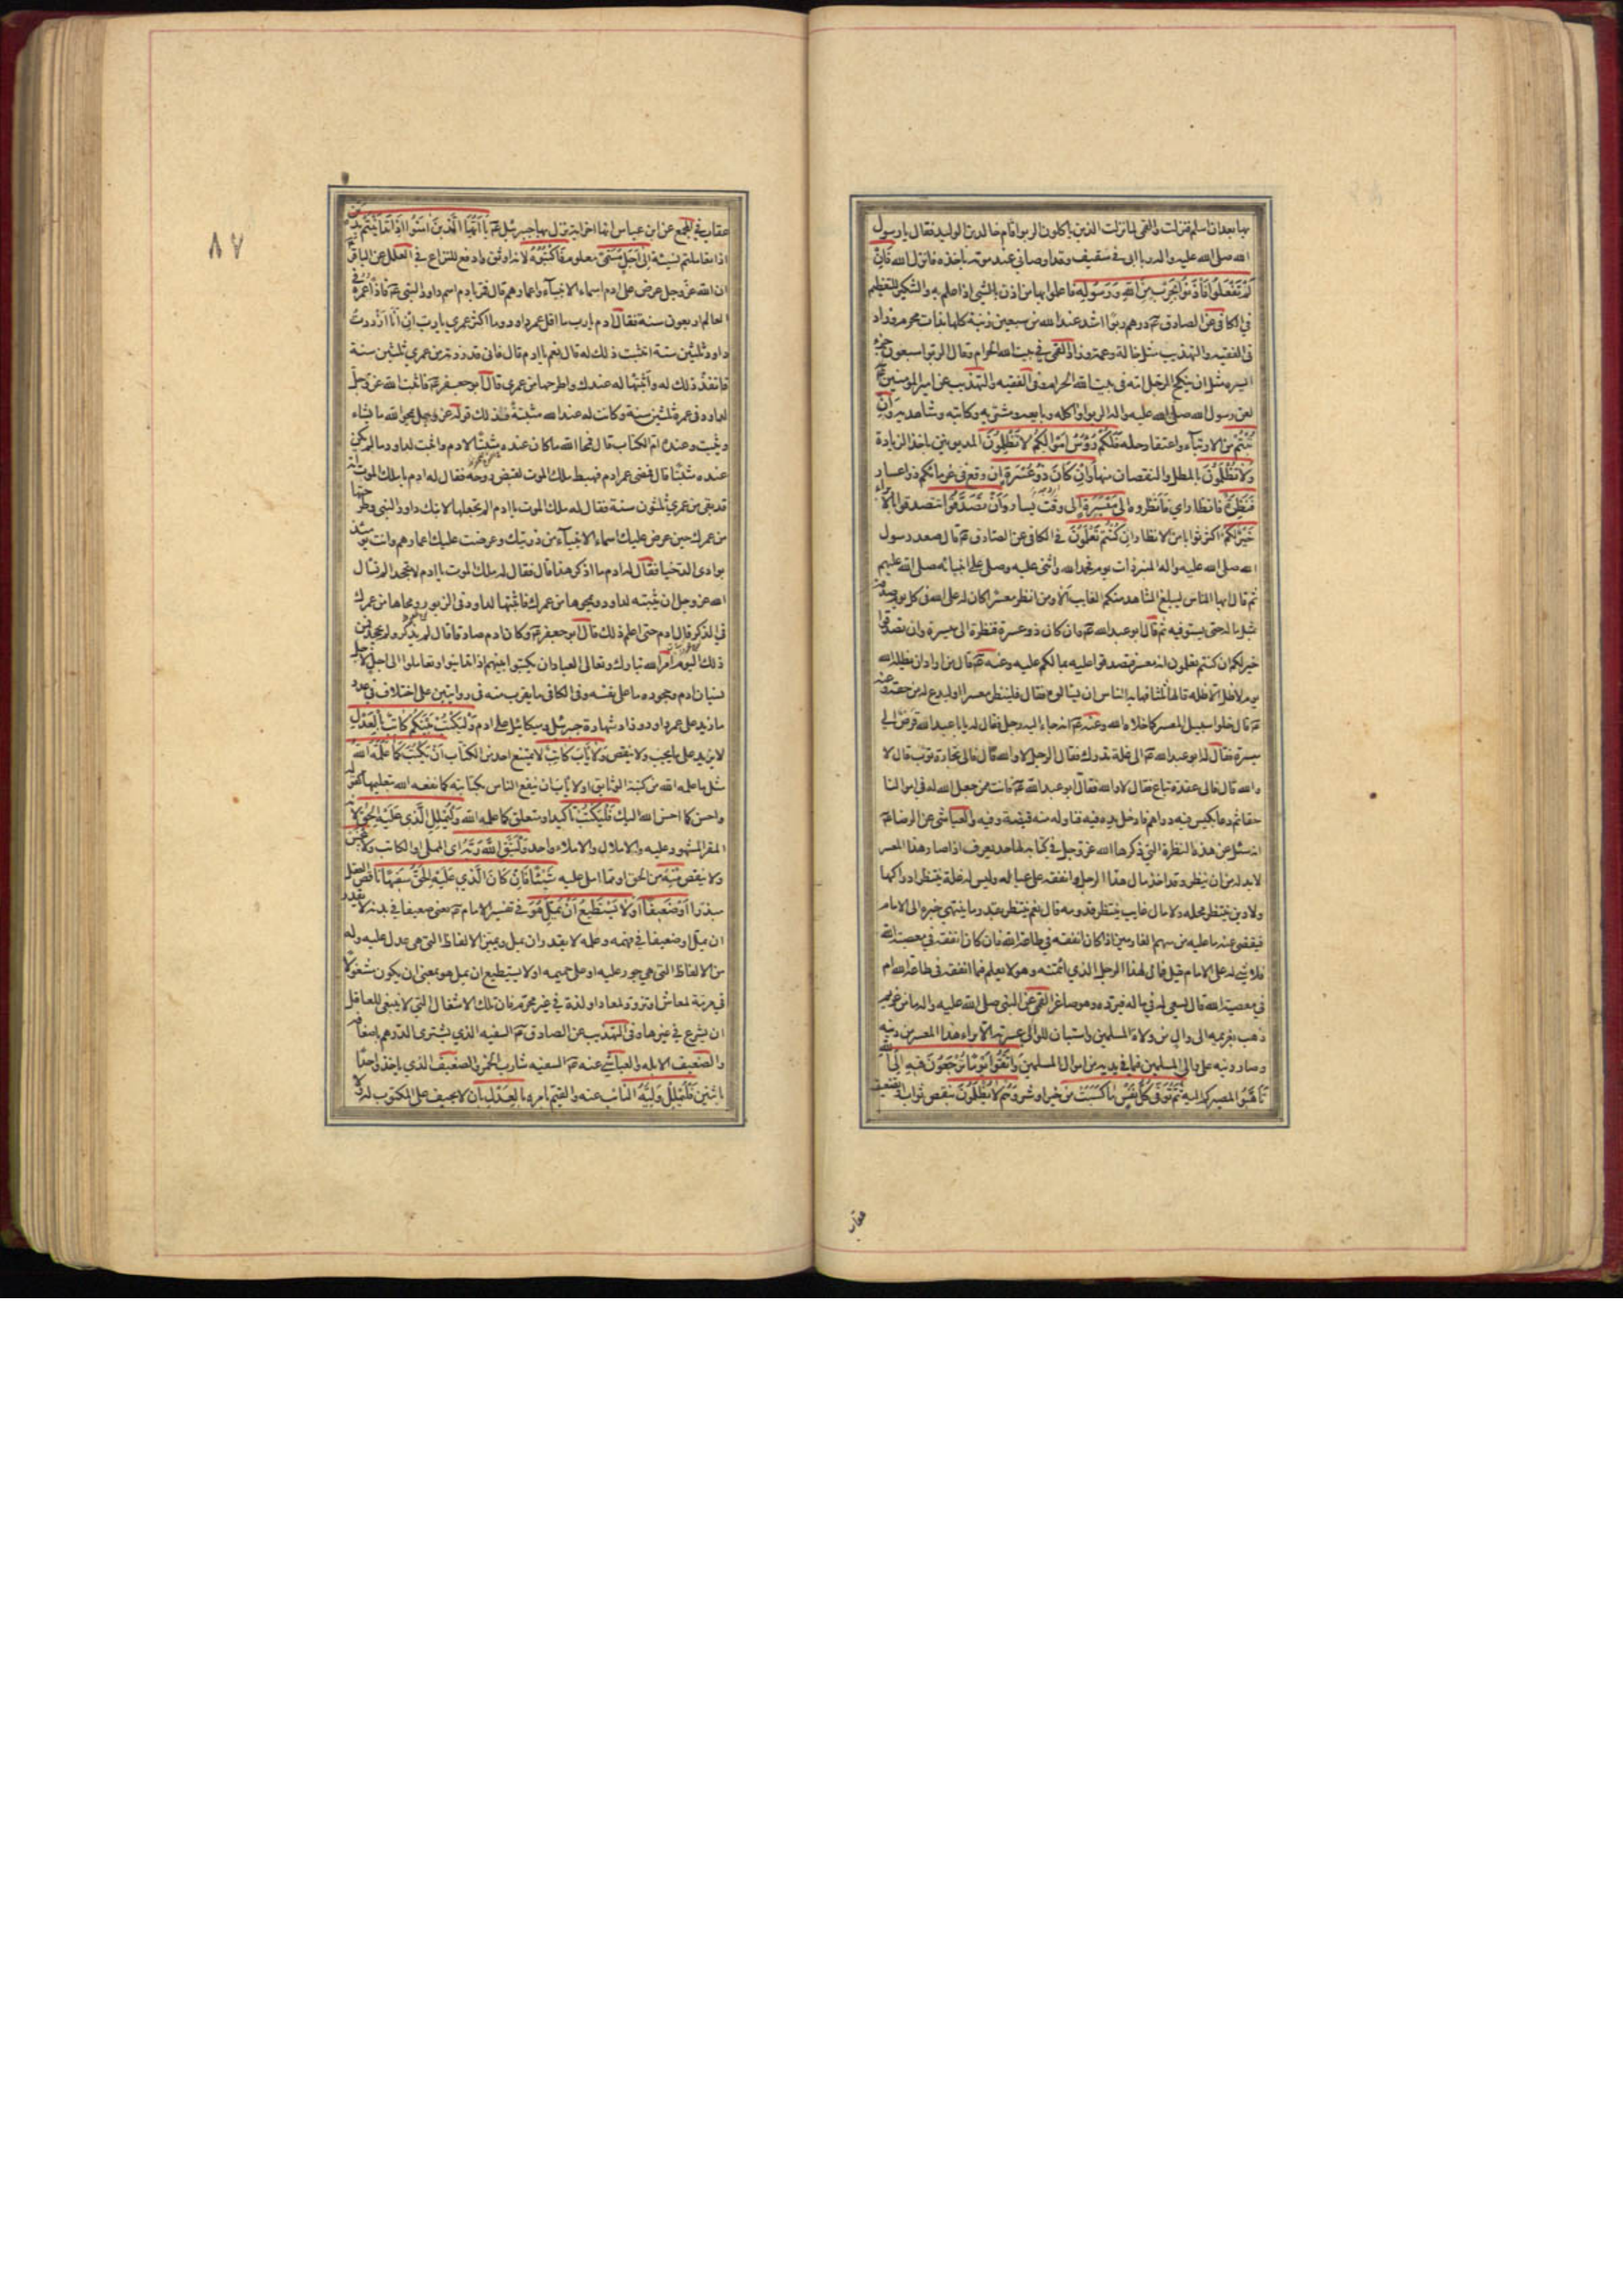 بها بعد ان اسلم فنزلت والقمى لما نزلت الذين ياكلون الربوا قام خالد بن الوليد فقال يا رسول
الله صلى الله عليه واله ربا ابى فى ثقيف وقد اوصانى عند موته باخذه فانزل الله فَاِنْ
لَمْ تَفْعَلُوا فَأْذَنُوا بِحَرْبٍ مِنَ اللهِ وَرَسُولِهِ فاعلموا بها من اذن بالشئ اذا علم به والتنكير للتعظيم
فى الكافى عن الصادق درهم ربوا اشد عند الله من سبعين زنية كلها بذات محرم وزاد
فى الفقيه والتهذيب مثل خالة وعمة وزاد القمى فى بيت الله الحرام وقال الربوا سبعون جزء
ايسره مثل ان ينكح الرجل امه فى بيت الله الحرام وفى الفقيه والتهذيب عن امير المؤمنين
لعن رسول الله صلى الله عليه واله الربوا واكله وبايعه ومشتريه وكاتبه وشاهديه وَاِنْ
تُبْتُمْ من الارتباء واعتقاد حله فَلَكُمْ رُؤُسُ اَمْوَالِكُمْ لَا تَظْلِمُونَ المديونين باخذ الزيادة
وَلَا تُظْلَمُونَ بالمطل والنقصان منها وَاِنْ كَانَ ذُو عُسْرَةٍ ان وقع فى غرمائكم ذو اعسار
فَنَظِرَةٌ فانظار اى فانظروه اِلَى مَيْسَرَةٍ الى وقت يسار وَاَنْ تَصَدَّقُوا تتصدقوا بالابراء
خَيْرٌ لَكُمْ اكثر ثوابا من الانظار اِنْ كُنْتُمْ تَعْلَمُونَ فى الكافى عن الصادق قال صعد رسول
الله صلى الله عليه واله المنبر ذات يوم فحمد الله واثنى عليه وصلى على انبيائه صلى الله عليهم
ثم قال ايها الناس ليبلغ الشاهد منكم الغايب الا ومن انظر معسرا كان له على الله فى كل يوم صدقة
بمثل ماله حتى يستوفيه ثم قال ابو عبد الله وان كان ذو عسرة فنظرة الى ميسرة وان تصدقوا
خير لكم ان كنتم تعلمون انه معسر فتصدقوا عليه بمالكم عليه وعنه قال من اراد ان يظله الله
يوم لا ظل الا ظله قالها ثلثا فهابه الناس ان يسألوه فقال فلينظر معسرا او ليدع له من حقه وعنه
قال خلوا سبيل المعسر كما خلاه الله وعنه انه جاء اليه رجل فقال له يا ابا عبد الله قرض الى
ميسرة فقال له ابو عبد الله الى غلة تدرك فقال الرجل لا والله قال فالى تجارة تؤب قال لا
والله قال فالى عقدة تباع فقال لا والله فقال ابو عبد الله فانت ممن جعل الله له فى اموالنا
حقا ثم دعا بكيس فيه دراهم فادخل يده فيه فناوله منه قبضة وفيه والعياشى عن الرضا
انه سئل عن هذه النظرة التى ذكرها الله عز وجل فى كتابه لها حد يعرف اذا صار هذا المعسر
لا بد له من ان ينظر وقد اخذ مال هذا الرجل وانفقه على عياله وليس له غلة ينتظر ادراكها
ولا دين ينتظر محله ولا مال غايب ينتظر قدومه قال نعم ينتظر بقدر ما ينتهى خبره الى الامام
فيقضى عنه ما عليه من سهم الغارمين اذا كان انفقه فى طاعة الله فان كان انفقه فى معصية الله
فلا شئ له على الامام قيل فما لهذا الرجل الذى ائتمنه وهو لا يعلم فيما انفقه فى طاعة الله ام
فى معصية الله قال يسعى له فى ماله فيرده وهو صاغر القمى عن النبى صلى الله عليه واله ما من غريم
ذهب بغريمه الى والى من ولاة المسلمين واستبان للوالى عسرته الا برء هذا المعسر من دينه
وصار دينه على والى المسلمين فيما فى يديه من اموال المسلمين وَاتَّقُوا يَوْمًا تُرْجَعُونَ فِيهِ اِلَى اللهِ
تأهبوا المصيركم اليه ثُمَّ تُوَفَّى كُلُّ نَفْسٍ مَا كَسَبَتْ من خير او شر وَهُمْ لَا يُظْلَمُونَ بنقص ثواب او تضعيف
عقاب
٨٧
عقاب فى المجمع عن ابن عباس انها اخر اية نزل بها جبرئيل يَا اَيُّهَا الَّذِينَ اٰمَنُوا اِذَا تَدَايَنْتُمْ بِدَيْنٍ
اذا تعاملتم نسيئة اِلَى اَجَلٍ مُسَمًّى معلوم فَاكْتُبُوهُ لانه اوثق وادفع للنزاع فى العلل عن الباقر
ان الله عز وجل عرض على ادم اسماء الانبياء واعمارهم قال فمر بادم اسم داود النبى فاذا عمره فى
العالم اربعون سنة فقال ادم يا رب ما اقل عمر داود وما اكثر عمرى يا رب ان انا ازددت
داود ثلثين سنة اتثبت ذلك له قال نعم يا ادم قال فانى قد زدته من عمرى ثلثين سنة
فانفذ ذلك له واثبتها له عندك واطرحها من عمرى قال ابو جعفر فاثبت الله عز وجل
لداود فى عمره ثلثين سنة وكانت له عند الله مثبتة فذلك قوله عز وجل يمحو الله ما يشاء
ويثبت وعنده ام الكتاب قال فمحا الله ما كان عنده مثبتا لادم واثبت لداود ما لم يكن
عنده مثبتا قال فمضى عمر ادم فهبط ملك الموت لقبض روحه فقال له ادم يا ملك الموت انه
قد بقى من عمرى ثلثون سنة فقال له ملك الموت يا ادم الم تجعلها لابنك داود النبى وطرحتها
من عمرك حين عرض عليك اسماء الانبياء من ذريتك وعرضت عليك اعمارهم وانت يومئذ
بوادى الدخيا فقال له ادم ما اذكر هذا قال فقال له ملك الموت يا ادم لا تجحد الم تسأل
الله عز وجل ان يثبته لداود ويمحوها من عمرك فاثبتها لداود فى الزبور ومحاها من عمرك
فى الذكر قال ادم حتى اعلم ذلك قال ابو جعفر وكان ادم صادقا قال لم يذكر ولم يجحد فمن
ذلك اليوم امر الله تبارك وتعالى العباد ان يكتبوا بينهم اذا تداينوا وتعاملوا الى اجل لاجل
نسيان ادم وجحوده ما على نفسه وفى الكافى ما يقرب منه فى روايتين على اختلاف فى عدد
ما زيد على عمر داود وزاد شهادة جبرئيل وميكائيل على ادم وَلْيَكْتُبْ بَيْنَكُمْ كَاتِبٌ بِالْعَدْلِ
لا يزيد على ما يجب ولا ينقص وَلَا يَأْبَ كَاتِبٌ لا يمتنع احد من الكتاب اَنْ يَكْتُبَ كَمَا عَلَّمَهُ اللهُ
مثل ما علمه الله من كتبة الوثايق او لا يأب ان ينفع الناس بكتابته كما نفعه الله بتعليمها كقوله
واحسن كما احسن الله اليك فَلْيَكْتُبْ تاكيد او متعلق كما علمه الله وَلْيُمْلِلِ الَّذِى عَلَيْهِ الْحَقُّ لانه
المقر المشهود عليه والاملال والاملاء واحد وَلْيَتَّقِ اللهَ رَبَّهُ اى المملى او الكاتب وَلَا يَبْخَسْ
ولا ينقص مِنْهُ من الحق او مما امل عليه شَيْئًا فَاِنْ كَانَ الَّذِى عَلَيْهِ الْحَقُّ سَفِيهًا ناقص العقل
مبذرا اَوْ ضَعِيفًا اَوْ لَا يَسْتَطِيعُ اَنْ يُمِلَّ هُوَ فى تفسير الامام يعنى ضعيفا فى بدنه لا يقدر
ان يمل او ضعيفا فى فهمه وعلمه لا يقدر ان يمل ويميز الالفاظ التى هى عدل عليه وله
من الالفاظ التى هى جور عليه او على حميمه او لا يستطيع ان يمل هو بمعنى ان يكون مشغولا
فى مرمة لمعاش او تزود لمعاد او لذة فى غير محرم فان تلك الاشغال التى لا ينبغى للعاقل
ان يشرع فى غيرها وفى التهذيب عن الصادق السفيه الذى يشترى الدرهم باضعافه
والضعيف الابله والعياشى عنه السفيه شارب الخمر والضعيف الذى ياخذ واحدا
باثنين فَلْيُمْلِلْ وَلِيُّهُ النائب عنه والقيم بامره بِالْعَدْلِ بان لا يحيف على المكتوب له ولا